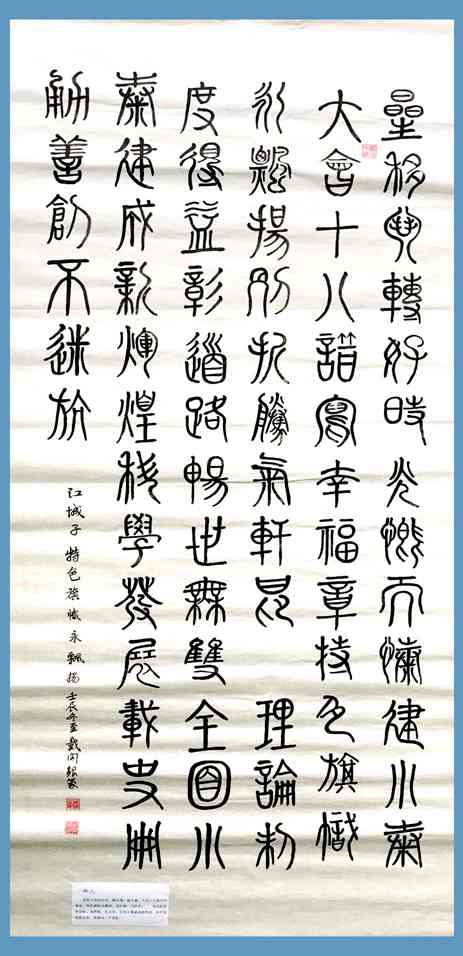 星移斗轉好時光慨而慷建小康
大會十八譜寫幸福章特色旗幟
永飄揚騰氣軒昂理論制
度得益彰道路暢世無雙全面小
康建成新輝煌科學發展載史冊
善創不迷航
江城子 特色旗幟永飄揚 壬辰冬